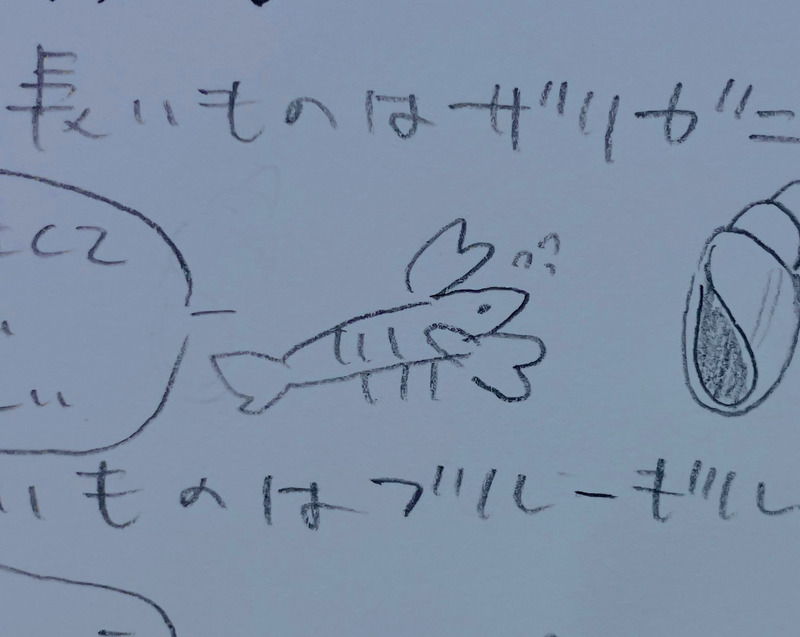 長いものはザリガニ
いものはブルーギル